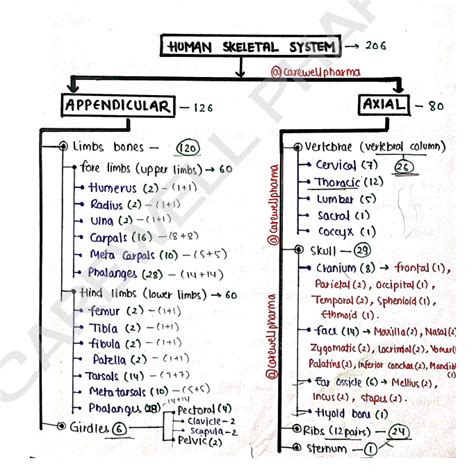 HUMAN SKELETAL SYSTEM → 206
@carewellpharma
APPENDICULAR - 126
Limbs bones - 120
fore limbs (upper limbs) → 60
Humerus (2) - (1+1)
Radius (2) - (1+1)
Ulna (2) - (1+1)
Carpals (16) - (8+8)
Meta Carpals (10) - (5+5)
Phalanges (28) - (14+14)
Hind limbs (lower limbs) → 60
femur (2) - (1+1)
Tibia (2) - (1+1)
fibula (2) - (1+1)
Patella (2) - (1+1)
Tarsals (14) - (7+7)
Meta tarsals (10) - (5+5)
Phalanges (28) - 14+14
Girdles 6
Pectoral (4)
Clavicle - 2
Scapula - 2
Pelvic (2)
AXIAL - 80
Vertebrae (vertebral column)
26
Cervical (7)
Thoracic (12)
Lumber (5)
Sacral (1)
Coccyx (1)
Skull - 29
Cranium (8) → frontal (1),
Parietal (2), Occipital (1),
Temporal (2), Sphenoid (1),
Ethmoid (1).
face (14) → Maxilla (2), Nasal (2)
Zygomatic (2), Lacrimal (2), Vomer(1)
Palatine (2), Inferior conchae (2), Mandib
(1)
Ear ossicle (6) → Mellius (2),
Incus (2), stapes (2).
Hyoid bone (1)
Ribs (12 pairs) - 24
Sternum - 1
@carewellpharma
@carewellpharma
CAREWELL PHAR